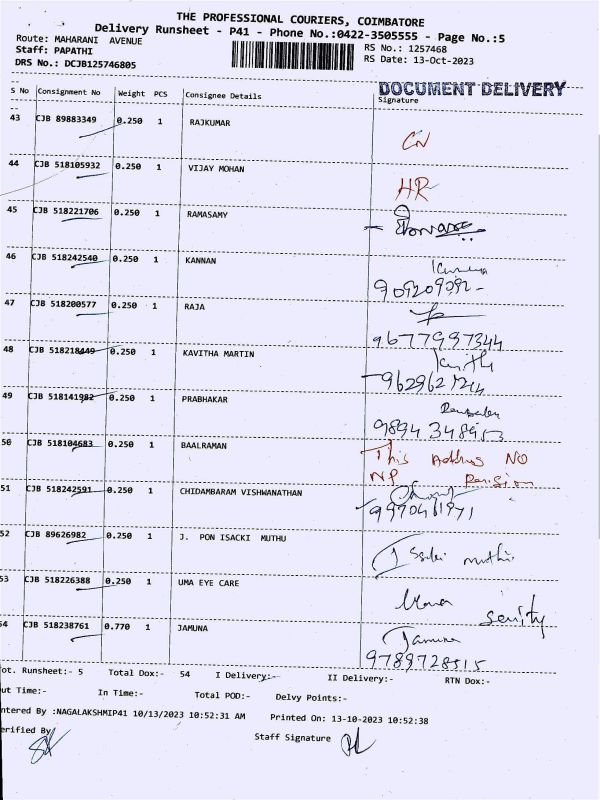 THE PROFESSIONAL COURIERS, COIMBATORE
Delivery Runsheet - P41 - Phone No.:0422-3505555 - Page No.:5
Route: MAHARANI AVENUE RS No.: 1257468
Staff: PAPATHI RS Date: 13-Oct-2023
DRS No.: DCJB125746805
DOCUMENT DELIVERY
S No Consignment No Weight PCS Consignee Details Signature
43 CJB 89883349 0.250 1 RAJKUMAR
44 CJB 518105932 0.250 1 VIJAY MOHAN HR
45 CJB 518221706 0.250 1 RAMASAMY
46 CJB 518242540 0.250 1 KANNAN
47 CJB 518200577 0.250 1 RAJA
9677997344
48 CJB 518218449 0.250 1 KAVITHA MARTIN
49 CJB 518141982 0.250 1 PRABHAKAR
50 CJB 518104683 0.250 1 BAALRAMAN This Address NO
51 CJB 518242591 0.250 1 CHIDAMBARAM VISHWANATHAN
52 CJB 89626982 0.250 1 J. PON ISACKI MUTHU
53 CJB 518226388 0.250 1 UMA EYE CARE
54 CJB 518238761 0.770 1 JAMUNA
9789728515
ot. Runsheet:- 5 Total Dox:- 54 I Delivery:- II Delivery:- RTN Dox:-
ut Time:- In Time:- Total POD:- Delvy Points:-
ntered By :NAGALAKSHMIP41 10/13/2023 10:52:31 AM Printed On: 13-10-2023 10:52:38
erified By Staff Signature